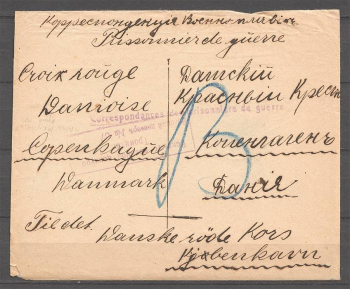 Корреспонденція Военно-плѣнн
Prissonnier de guerre
Croix rouge
Danoise
Copenhague
Danmark
Датскій
Красный Крестъ
Копенгагенъ
Данія
Correspondances de prisonniers de guerre
13
Til det
Danske röde Kors
Kjøbenhavn